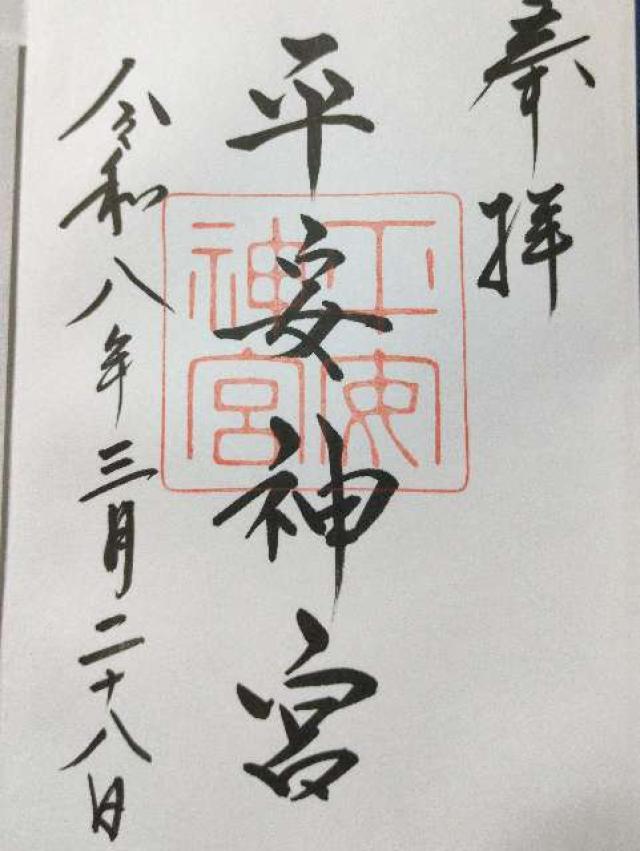 奉拝
平安神宮
平安神宮
令和八年三月二十八日